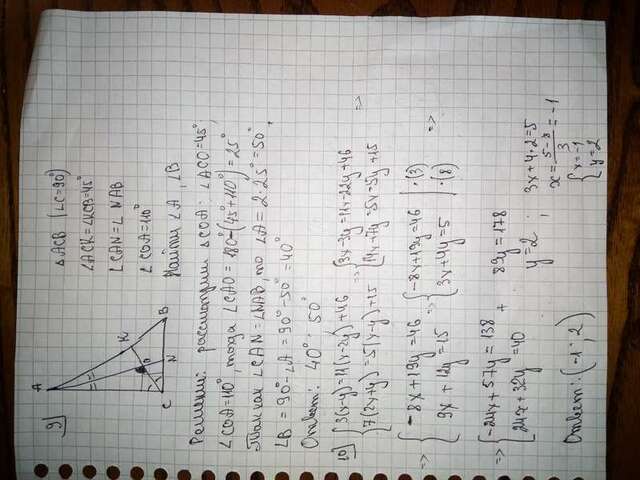 9]
A
K
O
C
N
B
△ACB (∠C=90°)
∠ACK=∠KCB=45°
∠CAN=∠NAB
∠COA=110°
Найти ∠A, ∠B
Решение: рассмотрим △COA: ∠ACO=45°,
∠COA=110°, тогда ∠CAO = 180°-(45°+110°)=25°
Так как ∠CAN=∠NAB, то ∠A=2·25°=50°,
∠B = 90°-∠A = 90°-50°=40°
Ответ: 40° ; 50°
10] { 3(x-y)=11(x-2y)+46 => { 3x-3y=11x-22y+46 =>
7(2x+y)=5(x-y)+15 14x+7y=5x-5y+15
=> { -8x+19y=46 => { -8x+19y=46 | ·(3) =>
9x+12y=15 3x+4y=5 | ·(8)
=> { -24x+57y=138 + 89y=178
24x+32y=40 y=2 ; 3x+4·2=5
x=\frac{5-8}{3}=-1
Ответ: (-1 ; 2) { x=-1
y=2